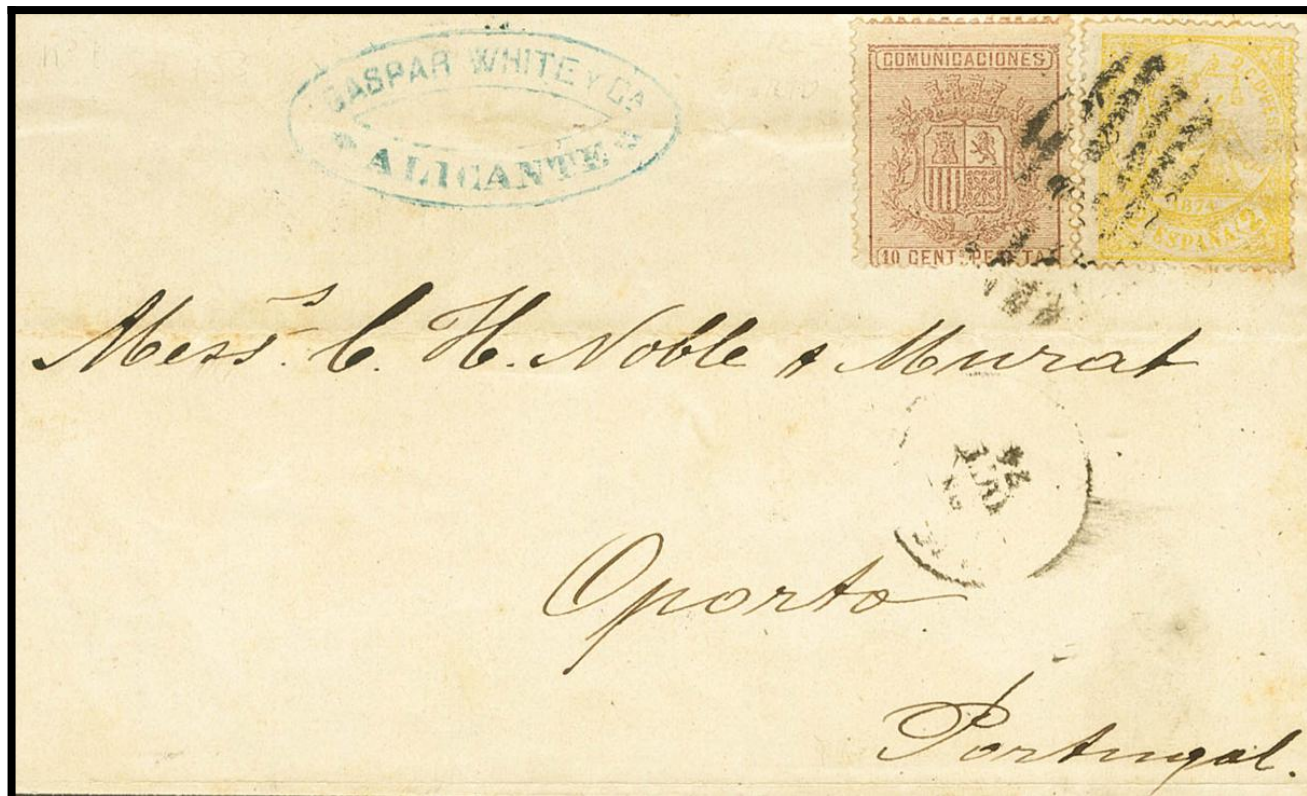 GASPAR WHITE Y CA
ALICANTE
COMUNICACIONES
10 CENTS PESETA
1874
ESPAÑA 2
Mess.rs C. H. Noble & Murat
Oporto
Portugal.